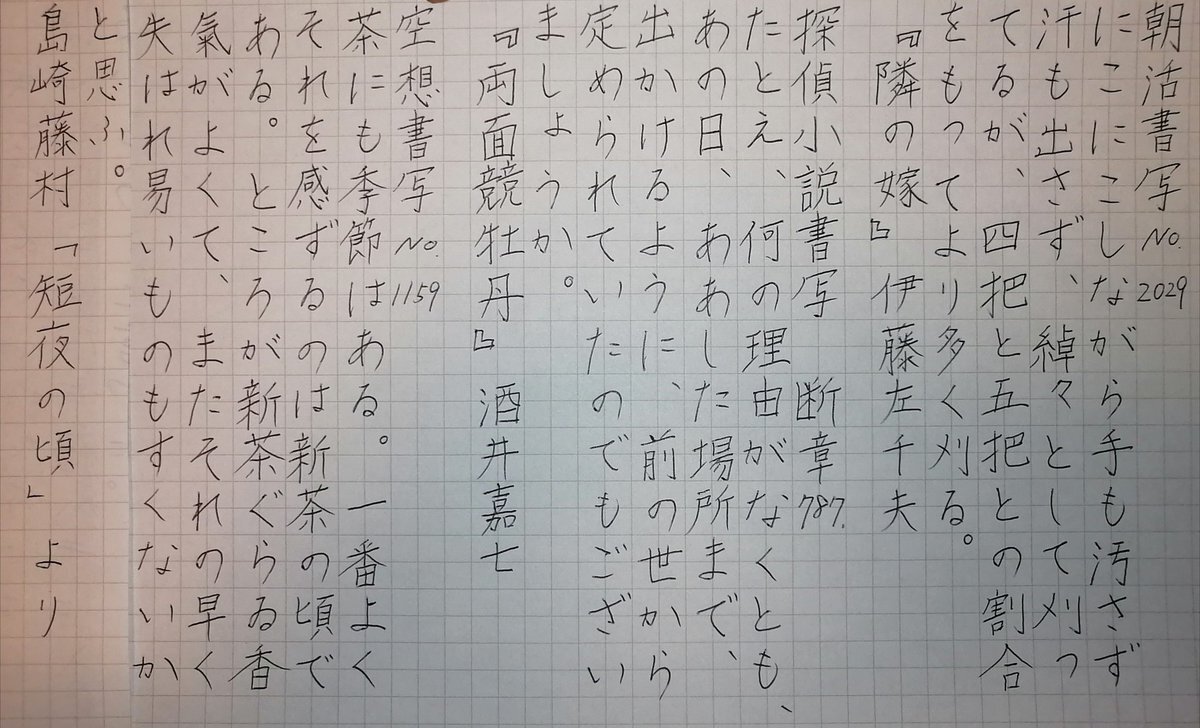 朝活書写 No. 2029
にこにこしながら手も汚さず
汗も出さず、綽々として刈っ
てるが、四把と五把との割合
をもってより多く刈る。
『隣の嫁』伊藤左千夫
探偵小説書写 断章 787.
たとえ、何の理由がなくとも、
あの日、ああした場所まで、
出かけるように、前の世から
定められていたのでもござい
ましょうか。
『両面競牡丹』 酒井嘉七
空想書写 No. 1159
茶にも季節はある。一番よく
それを感ずるのは新茶の頃で
ある。ところが新茶ぐらゐ香
氣がよくて、またそれの早く
失はれ易いものもすくないか
と思ふ。
島崎藤村 「短夜の頃」より